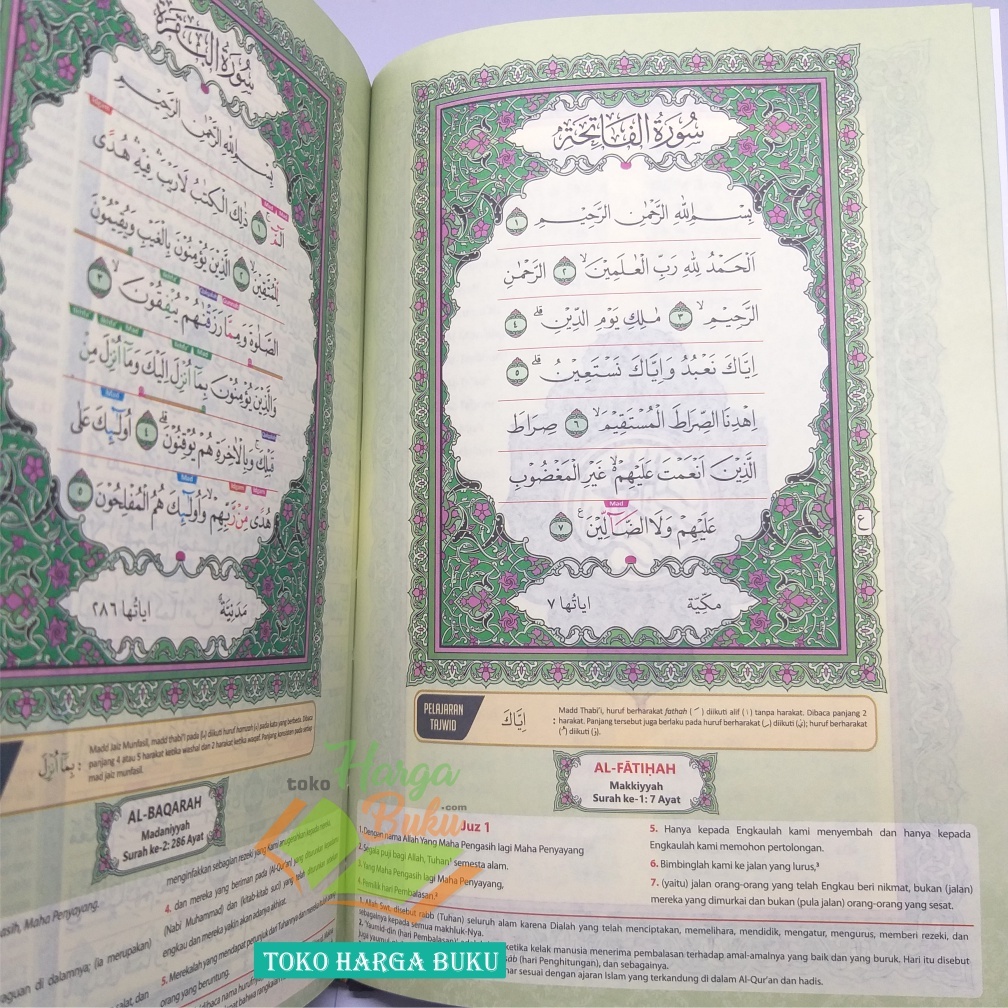 سُورَةُ الْفَاتِحَةِ
بِسْمِ اللّٰهِ الرَّحْمٰنِ الرَّحِيْمِ ١
اَلْحَمْدُ لِلّٰهِ رَبِّ الْعٰلَمِيْنَۙ ٢ الرَّحْمٰنِ
الرَّحِيْمِۙ ٣ مٰلِكِ يَوْمِ الدِّيْنِۗ ٤
اِيَّاكَ نَعْبُدُ وَاِيَّاكَ نَسْتَعِيْنُۗ ٥
اِهْدِنَا الصِّرَاطَ الْمُسْتَقِيْمَۙ ٦ صِرَاطَ
الَّذِيْنَ اَنْعَمْتَ عَلَيْهِمْ ەۙ غَيْرِ الْمَغْضُوْبِ
Mad
عَلَيْهِمْ وَلَا الضَّاۤلِّيْنَ ٧
ع
مَكِّيَّة اٰيَاتُهَا ٧
PELAJARAN TAJWID
اِيَّاكَ
Madd Thabi'i, huruf berharakat fathah (ـَ) diikuti alif (ا) tanpa harakat. Dibaca panjang 2
: harakat. Panjang tersebut juga berlaku pada huruf berharakat (ـِ) diikuti (يْ); huruf berharakat
(ـُ) diikuti (وْ).
AL-FĀTIḤAH
Makkiyyah
Surah ke-1: 7 Ayat
Juz 1
1. Dengan nama Allah Yang Maha Pengasih lagi Maha Penyayang
2. Segala puji bagi Allah, Tuhan¹ semesta alam.
3. Yang Maha Pengasih lagi Maha Penyayang,
4. Pemilik hari Pembalasan.²
5. Hanya kepada Engkaulah kami menyembah dan hanya kepada
Engkaulah kami memohon pertolongan.
6. Bimbinglah kami ke jalan yang lurus,³
7. (yaitu) jalan orang-orang yang telah Engkau beri nikmat, bukan (jalan)
mereka yang dimurkai dan bukan (pula jalan) orang-orang yang sesat.
1. Allah Swt. disebut rabb (Tuhan) seluruh alam karena Dialah yang telah menciptakan, memelihara, mendidik, mengatur, mengurus, memberi rezeki, dan
sebagainya kepada semua makhluk-Nya.
2. 'Yaumid-din (hari Pembalasan)' ketika kelak manusia menerima pembalasan terhadap amal-amalnya yang baik dan yang buruk. Hari itu disebut
(hari Penghitungan), dan sebagainya.
sesuai dengan ajaran Islam yang terkandung di dalam Al-Qur'an dan hadis.
سُورَةُ الْبَقَرَةِ
بِسْمِ اللّٰهِ الرَّحْمٰنِ الرَّحِيْمِ
الۤمّۤ ۚ ١ ذٰلِكَ الْكِتٰبُ لَا رَيْبَ ۛ فِيْهِ ۛ هُدًى
لِّلْمُتَّقِيْنَۙ ٢ الَّذِيْنَ يُؤْمِنُوْنَ بِالْغَيْبِ وَيُقِيْمُوْنَ
الصَّلٰوةَ وَمِمَّا رَزَقْنٰهُمْ يُنْفِقُوْنَۙ ٣
وَالَّذِيْنَ يُؤْمِنُوْنَ بِمَآ اُنْزِلَ اِلَيْكَ وَمَآ اُنْزِلَ مِنْ
قَبْلِكَۚ وَبِالْاٰخِرَةِ هُمْ يُوْقِنُوْنَۗ ٤ اُولٰۤىِٕكَ عَلٰى
هُدًى مِّنْ رَّبِّهِمْ ۙ وَاُولٰۤىِٕكَ هُمُ الْمُفْلِحُوْنَ ٥
مَدَنِيَّة اٰيَاتُهَا ٢٨٦
بِمَآ اُنْزِلَ :
Madd Jaiz Munfasil, madd thabi'i pada diikuti huruf hamzah (ء) pada kata yang berbeda. Dibaca
panjang 4 atau 5 harakat ketika washal dan 2 harakat ketika waqaf. Panjang konsisten pada setiap
mad jaiz munfasil.
AL-BAQARAH
Madaniyyah
Surah ke-2: 286 Ayat
menginfakkan sebagian rezeki yang Kami anugerahkan kepada mereka,
4. dan mereka yang beriman pada (Al-Qur'an) yang diturunkan kepadamu
(Nabi Muhammad) dan (kitab-kitab suci) yang telah diturunkan sebelum
engkau dan mereka yakin akan adanya akhirat.
5. Merekalah yang mendapat petunjuk dari Tuhannya dan mereka itulah
orang yang beruntung.
Maha Penyayang.
di dalamnya; (ia merupakan)
toko Harga Buku.com
TOKO HARGA BUKU